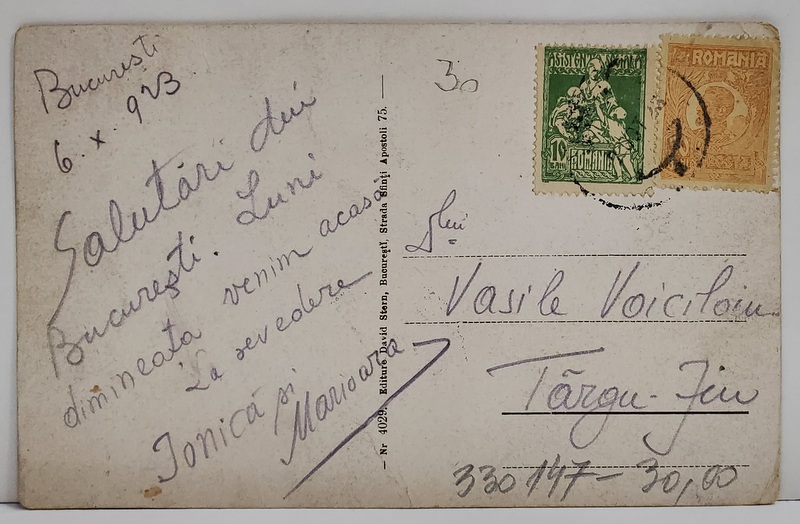 București
6. X. 923
Salutări din
București. Luni
dimineata venim acasă
La revedere
Ionică și
Marioara
— Nr 4029. Editure David Stern, Bucureștĭ, Strada Sfinți Apostoli 75. —
30
ASISTENȚA SOCIALA
10
BANI
ROMANIA
ROMANIA
Dlui
Vasile Voiciloiu
Târgu-Jiu
330147-30,00